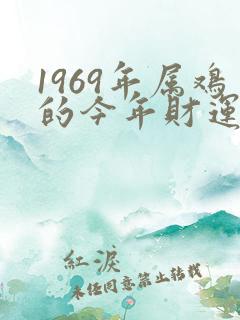 1969年属鸡
的今年財運
紅淚
未经同意禁止转载